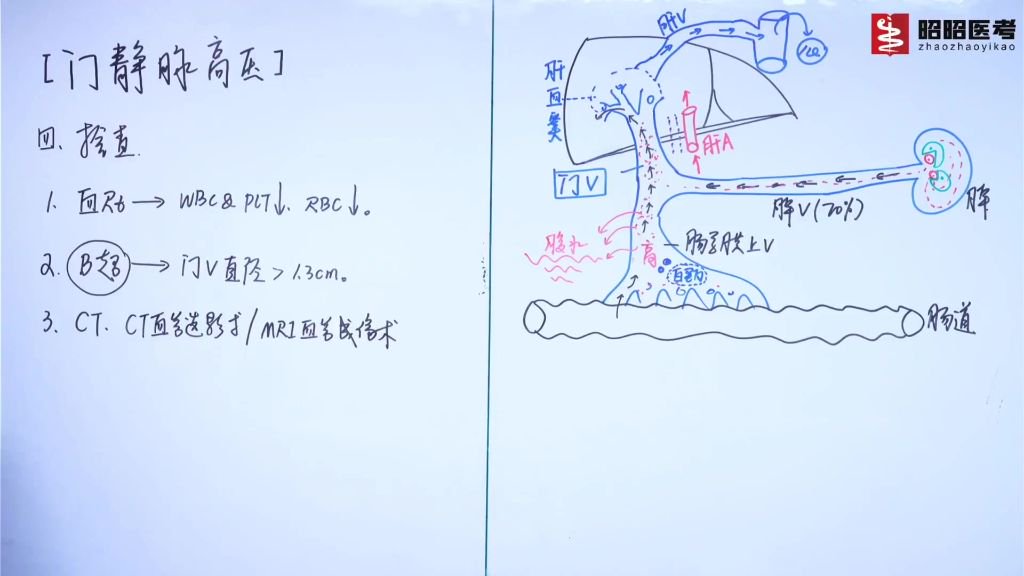 [门静脉高压]
四、检查.
1. 血Rt → WBC & PLT↓. RBC↓。
2. B超 → 门V直径 > 1.3cm。
3. CT、CT血管造影术/MRI血管成像术
昭昭医考
zhaozhaoyikao
肝V
肝血窦
肝A
门V
脾V(70%)
脾
腹水
高
肠系膜上V
白蛋白
肠道